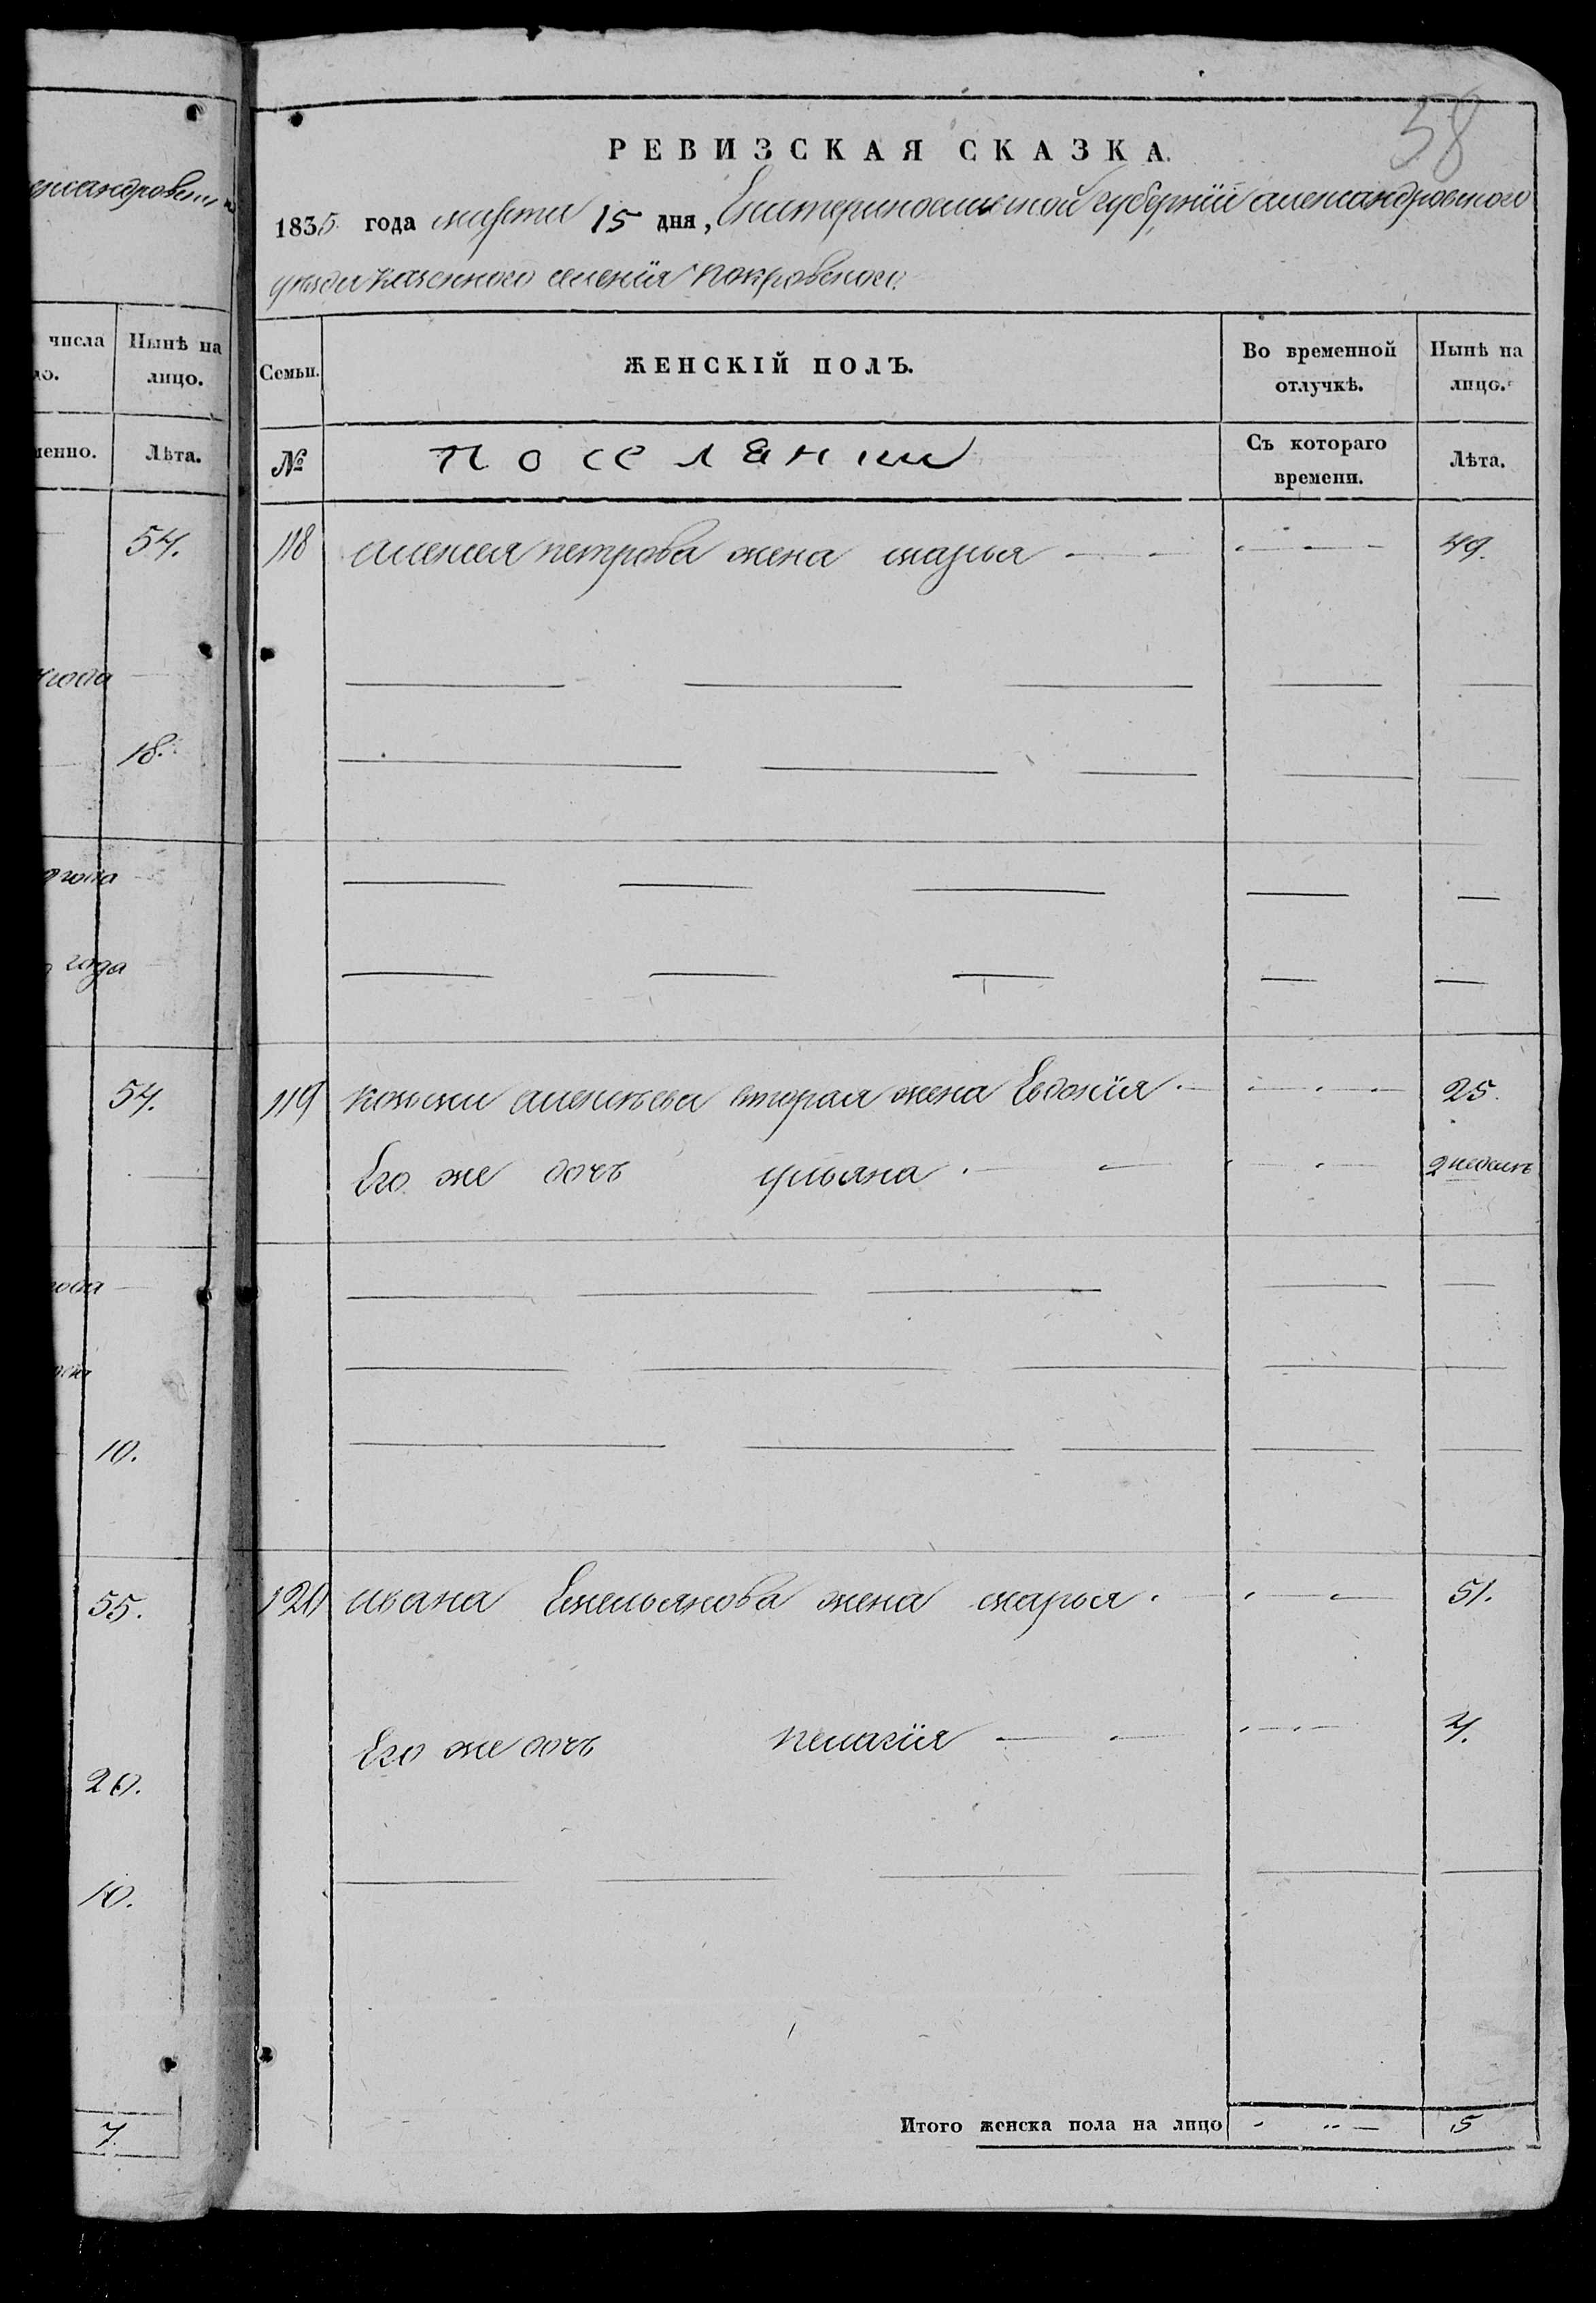 ександровск
числа
Нынѣ на
лицо.
Лѣта.
54.
года
18.
года
года
54.
года
10.
55.
20.
10.
7.
58
РЕВИЗСКАЯ СКАЗКА.
1835 года марта 15 дня, Екатеринославской губернїи александровского
уезда казенного селенїя покровского
Семьи.
ЖЕНСКІЙ ПОЛЪ.
Во временной отлучкѣ.
Нынѣ на лицо.
№
поселянии
Съ котораго времени.
Лѣта.
118 алексея петрова жена марья 49.
119 козьмы алексеева вторая жена Евдокїя 25.
Его же дочь ульяна 2 недель
120 ивана Емельянова жена марья 51.
Его же дочь пелагїя 4.
Итого женска пола на лицо 5